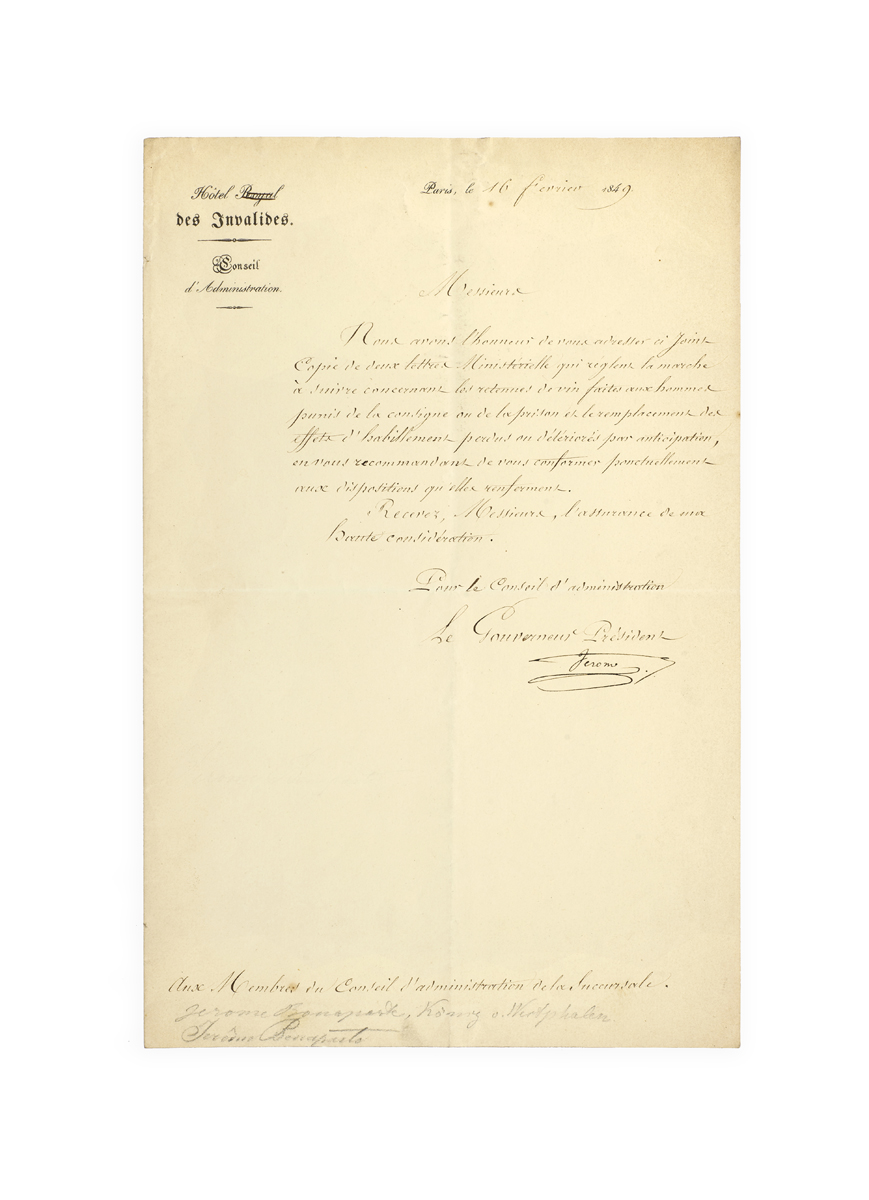 Hôtel Royal
des Invalides.
Conseil
d'Administration.
Paris, le 16 février 1849
Messieurs
Nous avons l'honneur de vous adresser ci Joint
Copie de deux lettres Ministérielle qui règlent la marche
à suivre concernant les retenues de vin faites aux hommes
punis de la consigne ou de la prison et le remplacement des
effets d'habillement perdus ou détériorés par anticipation,
en vous recommandant de vous conformer ponctuellement
aux dispositions qu'elles renferment.
Recevez, Messieurs, l'assurance de ma
haute considération.
Pour le Conseil d'administration
Le Gouverneur Président
Jerome
Aux Membres du Conseil d'administration de la Succursale.
Jerome Bonaparte, König v. Westphalen
Jerôme Bonaparte